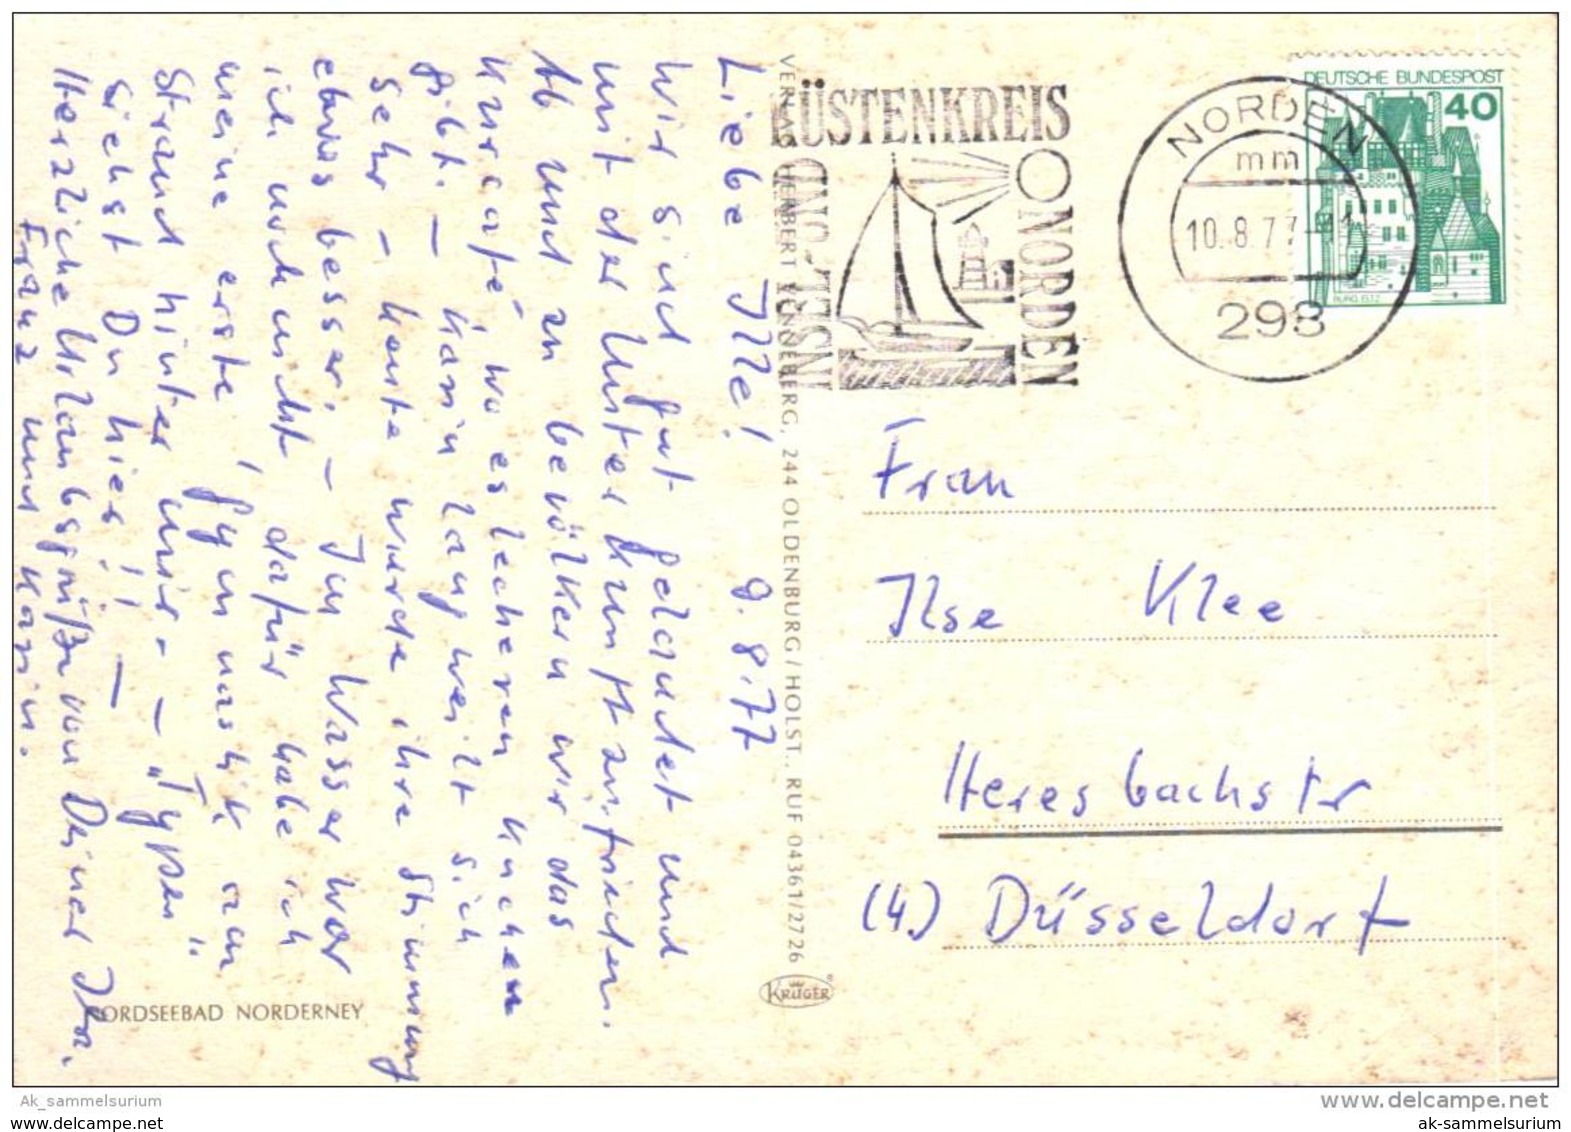 Liebe Ille! 9.8.77
Wir sind gut gelandet und
mit der Unterkunft zufrieden.
Ab und zu bevölkern wir das
Kurcafé, wo es leckeren Kuchen
gibt. – Karin langweilt sich
sehr – heute wurde ihre Stimmung
etwas besser. – Im Wasser war
ich noch nicht, dafür habe ich
meine erste Gymnastik am
Strand hinter mir. – „Typen"
siehst Du hier!! –
Herzliche Urlaubsgrüße von Deiner
Franz und Karin.
VERLAG HERBERT VENNEBERG, 244 OLDENBURG/HOLST., RUF 04361/2726
KRÜGER
ORDSEEBAD NORDERNEY
KÜSTENKREIS
NORDEN
INSEL- UND
NORDEN
mm
10.8.77
298
DEUTSCHE BUNDESPOST
40
BURG ELTZ
Frau
Ilse Klee
Heresbachstr
(4) Düsseldorf
Ak_sammelsurium
www.delcampe.net
ak-sammelsurium
ak-sammelsurium
www.delcampe.net